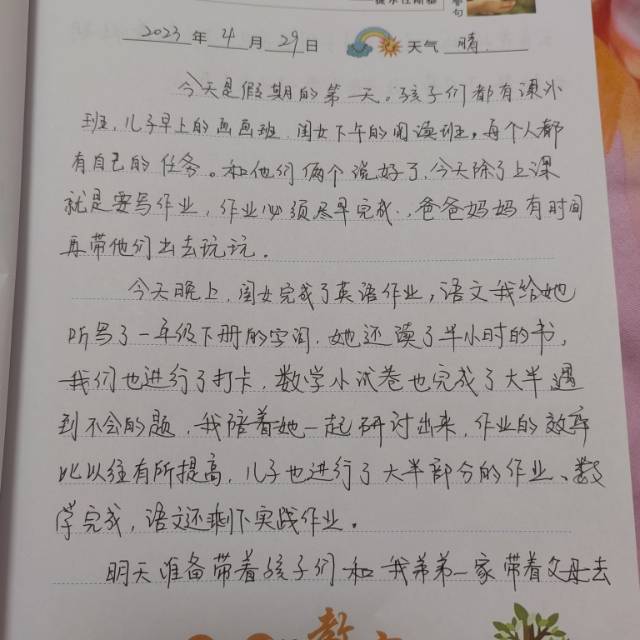 2023 年 4 月 29 日 天气 晴
今天是假期的第一天。孩子们都有课外
班,儿子早上的画画班,闺女下午的阅读班,每个人都
有自己的任务。和他们俩个说好了,今天除了上课
就是要写作业,作业必须尽早完成,爸爸妈妈有时间
再带他们出去玩玩。
今天晚上,闺女完成了英语作业,语文我给她
听写了一年级下册的字词,她还读了半小时的书,
我们也进行了打卡,数学小试卷也完成了大半遇
到不会的题,我陪着她一起研讨出来,作业的效率
比以往有所提高,儿子也进行了大半部分的作业、数
学完成,语文还剩下实践作业。
明天准备带着孩子们和我弟弟一家带着父母去